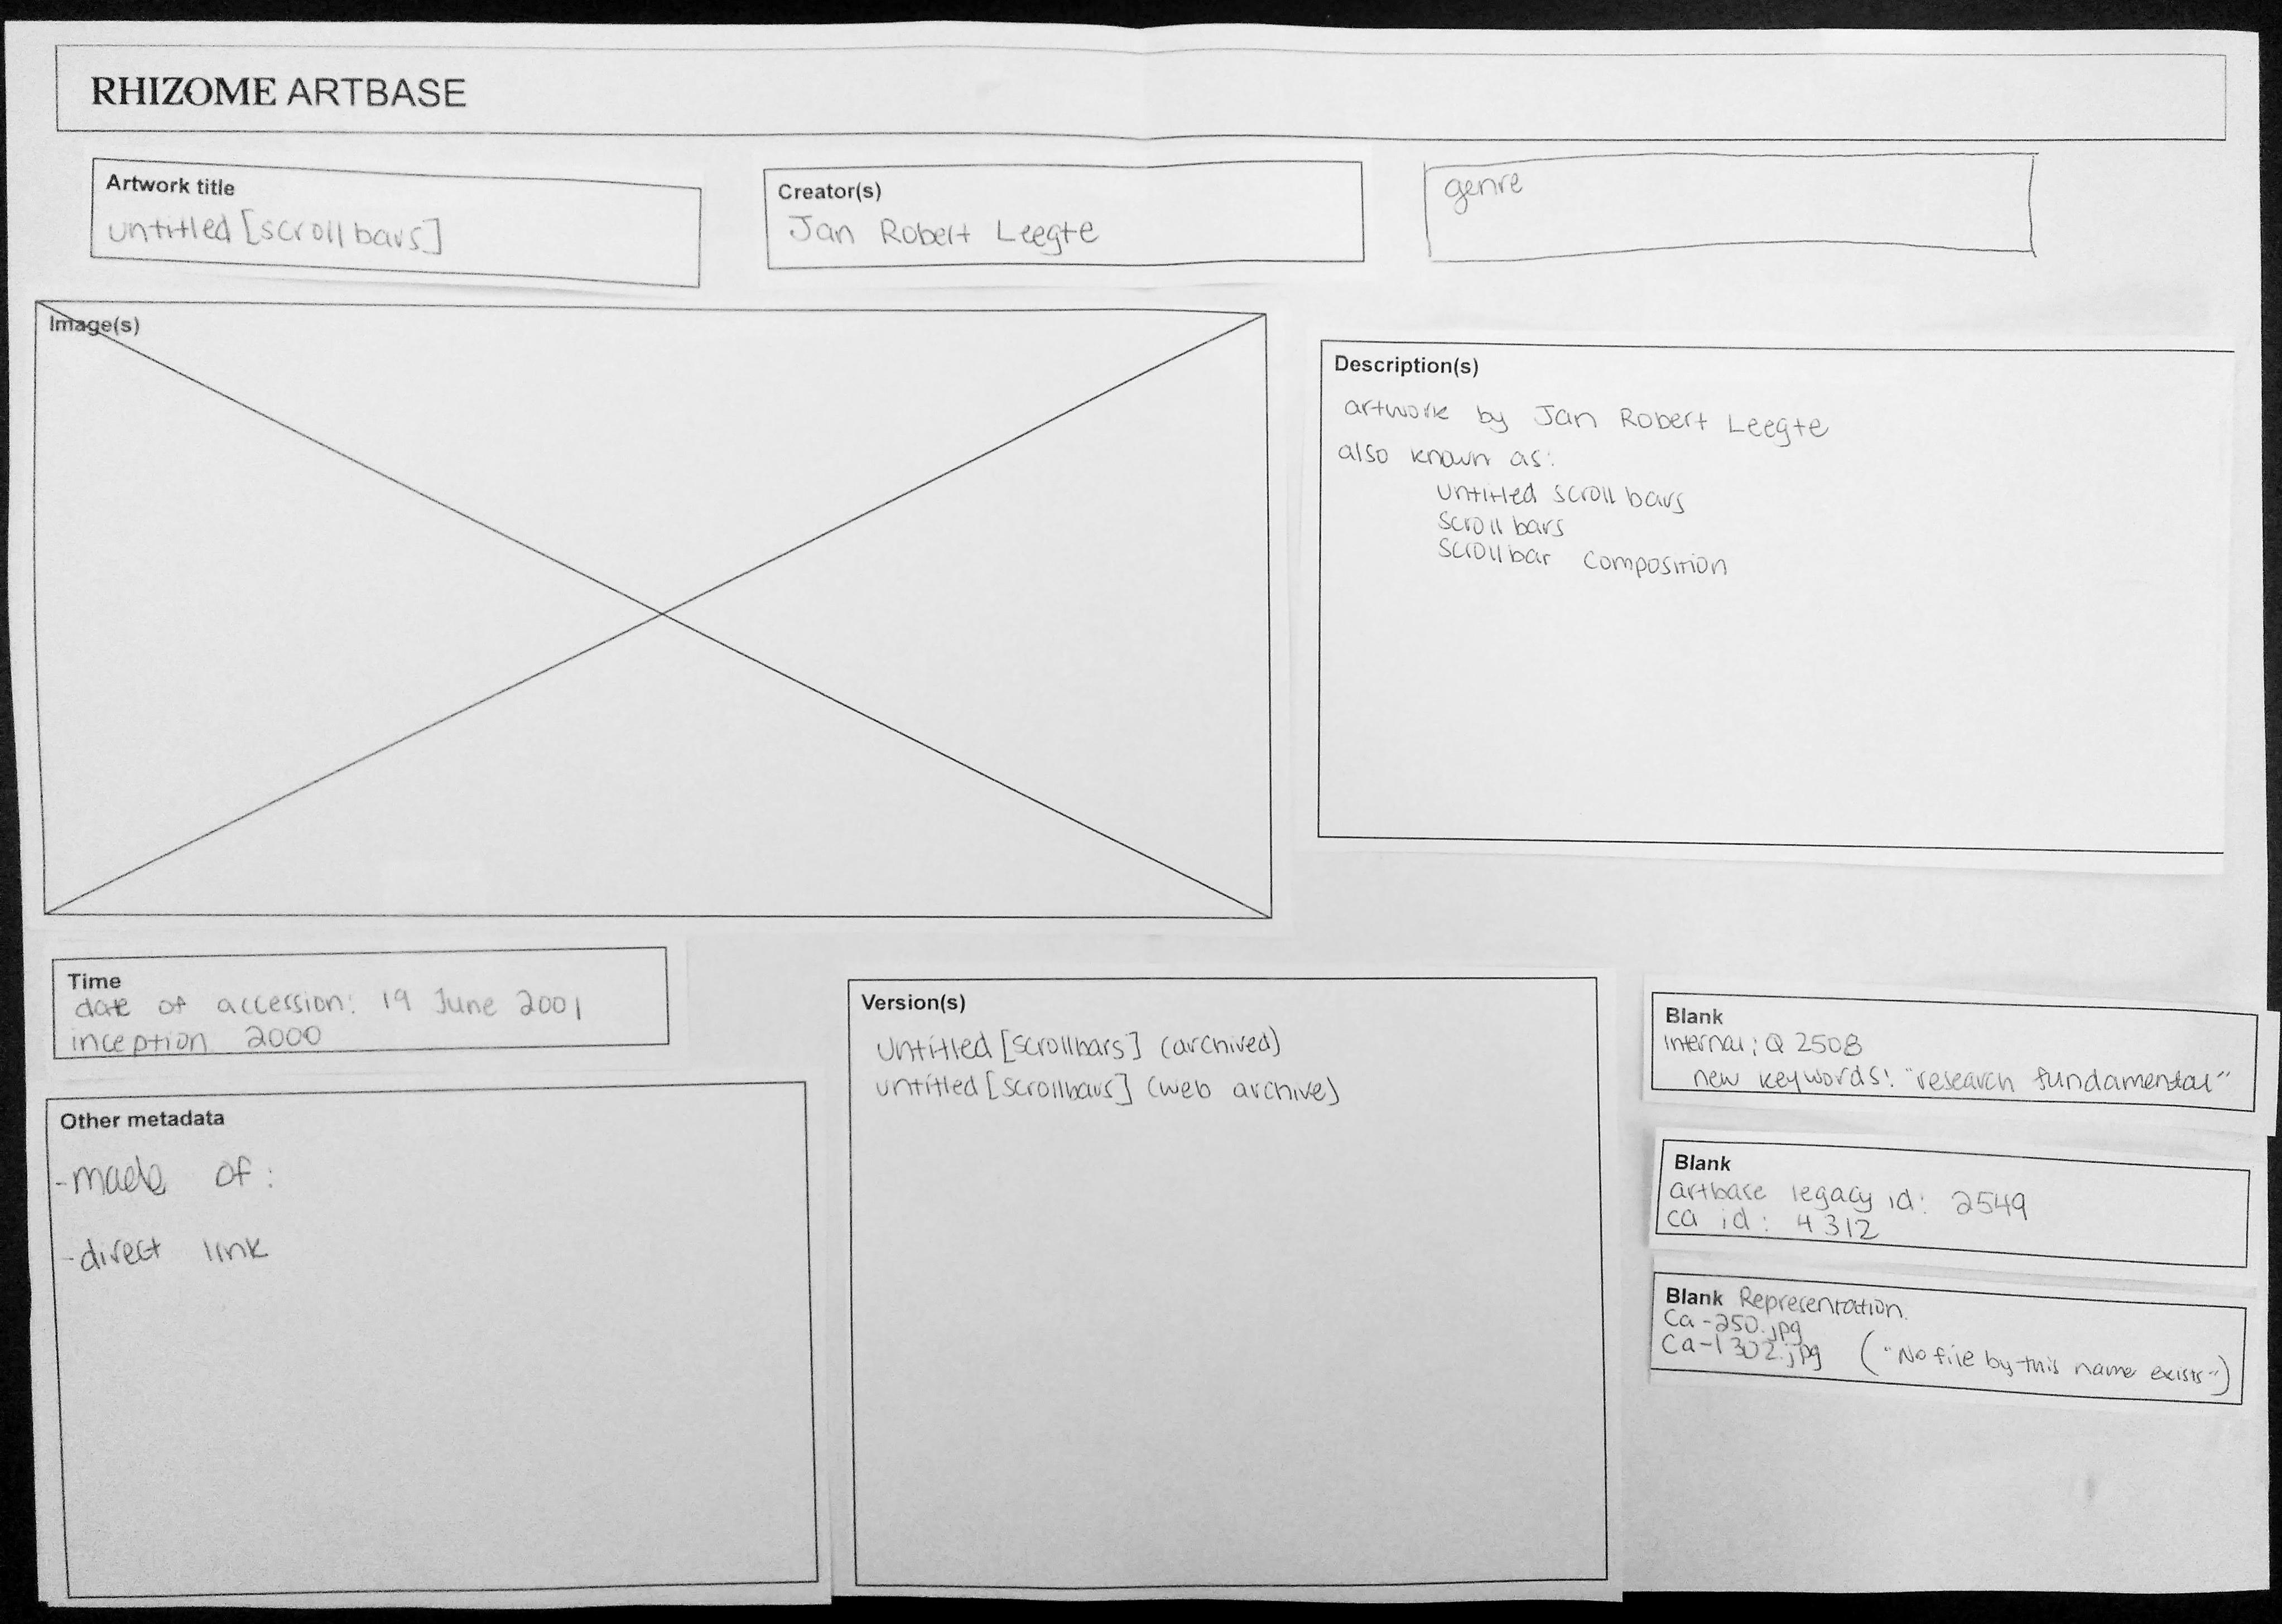 RHIZOME ARTBASE
Artwork title
untitled [scrollbars]
Creator(s)
Jan Robert Leegte
genre
Image(s)
Description(s)
artwork by Jan Robert Leegte
also known as:
untitled scrollbars
scrollbars
scrollbar composition
Time
date of accession: 19 June 2001
inception 2000
Other metadata
-made of:
-direct link
Version(s)
Untitled [scrollbars] (archived)
untitled [scrollbars] (web archive)
Blank
internal: Q 2508
new keywords: "research fundamental"
Blank
artbase legacy id: 2549
ca id: 4312
Blank Representation.
Ca-250.jpg
Ca-1302.jpg ("No file by this name exists")